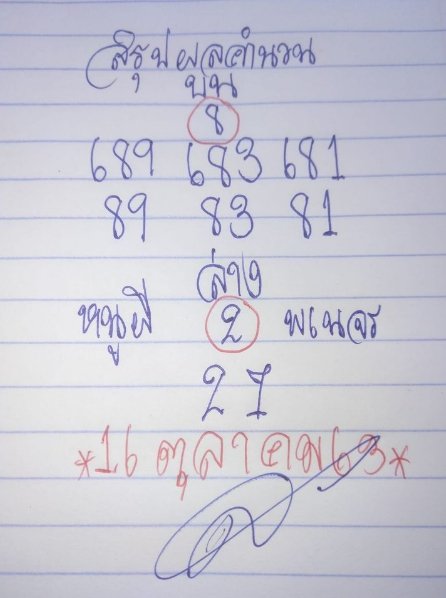 สรุปผลคำนวน
บน
8
689 683 681
89 83 81
ล่าง
หนูผี 2 พเนจร
27
*16 ตุลาคม 63*